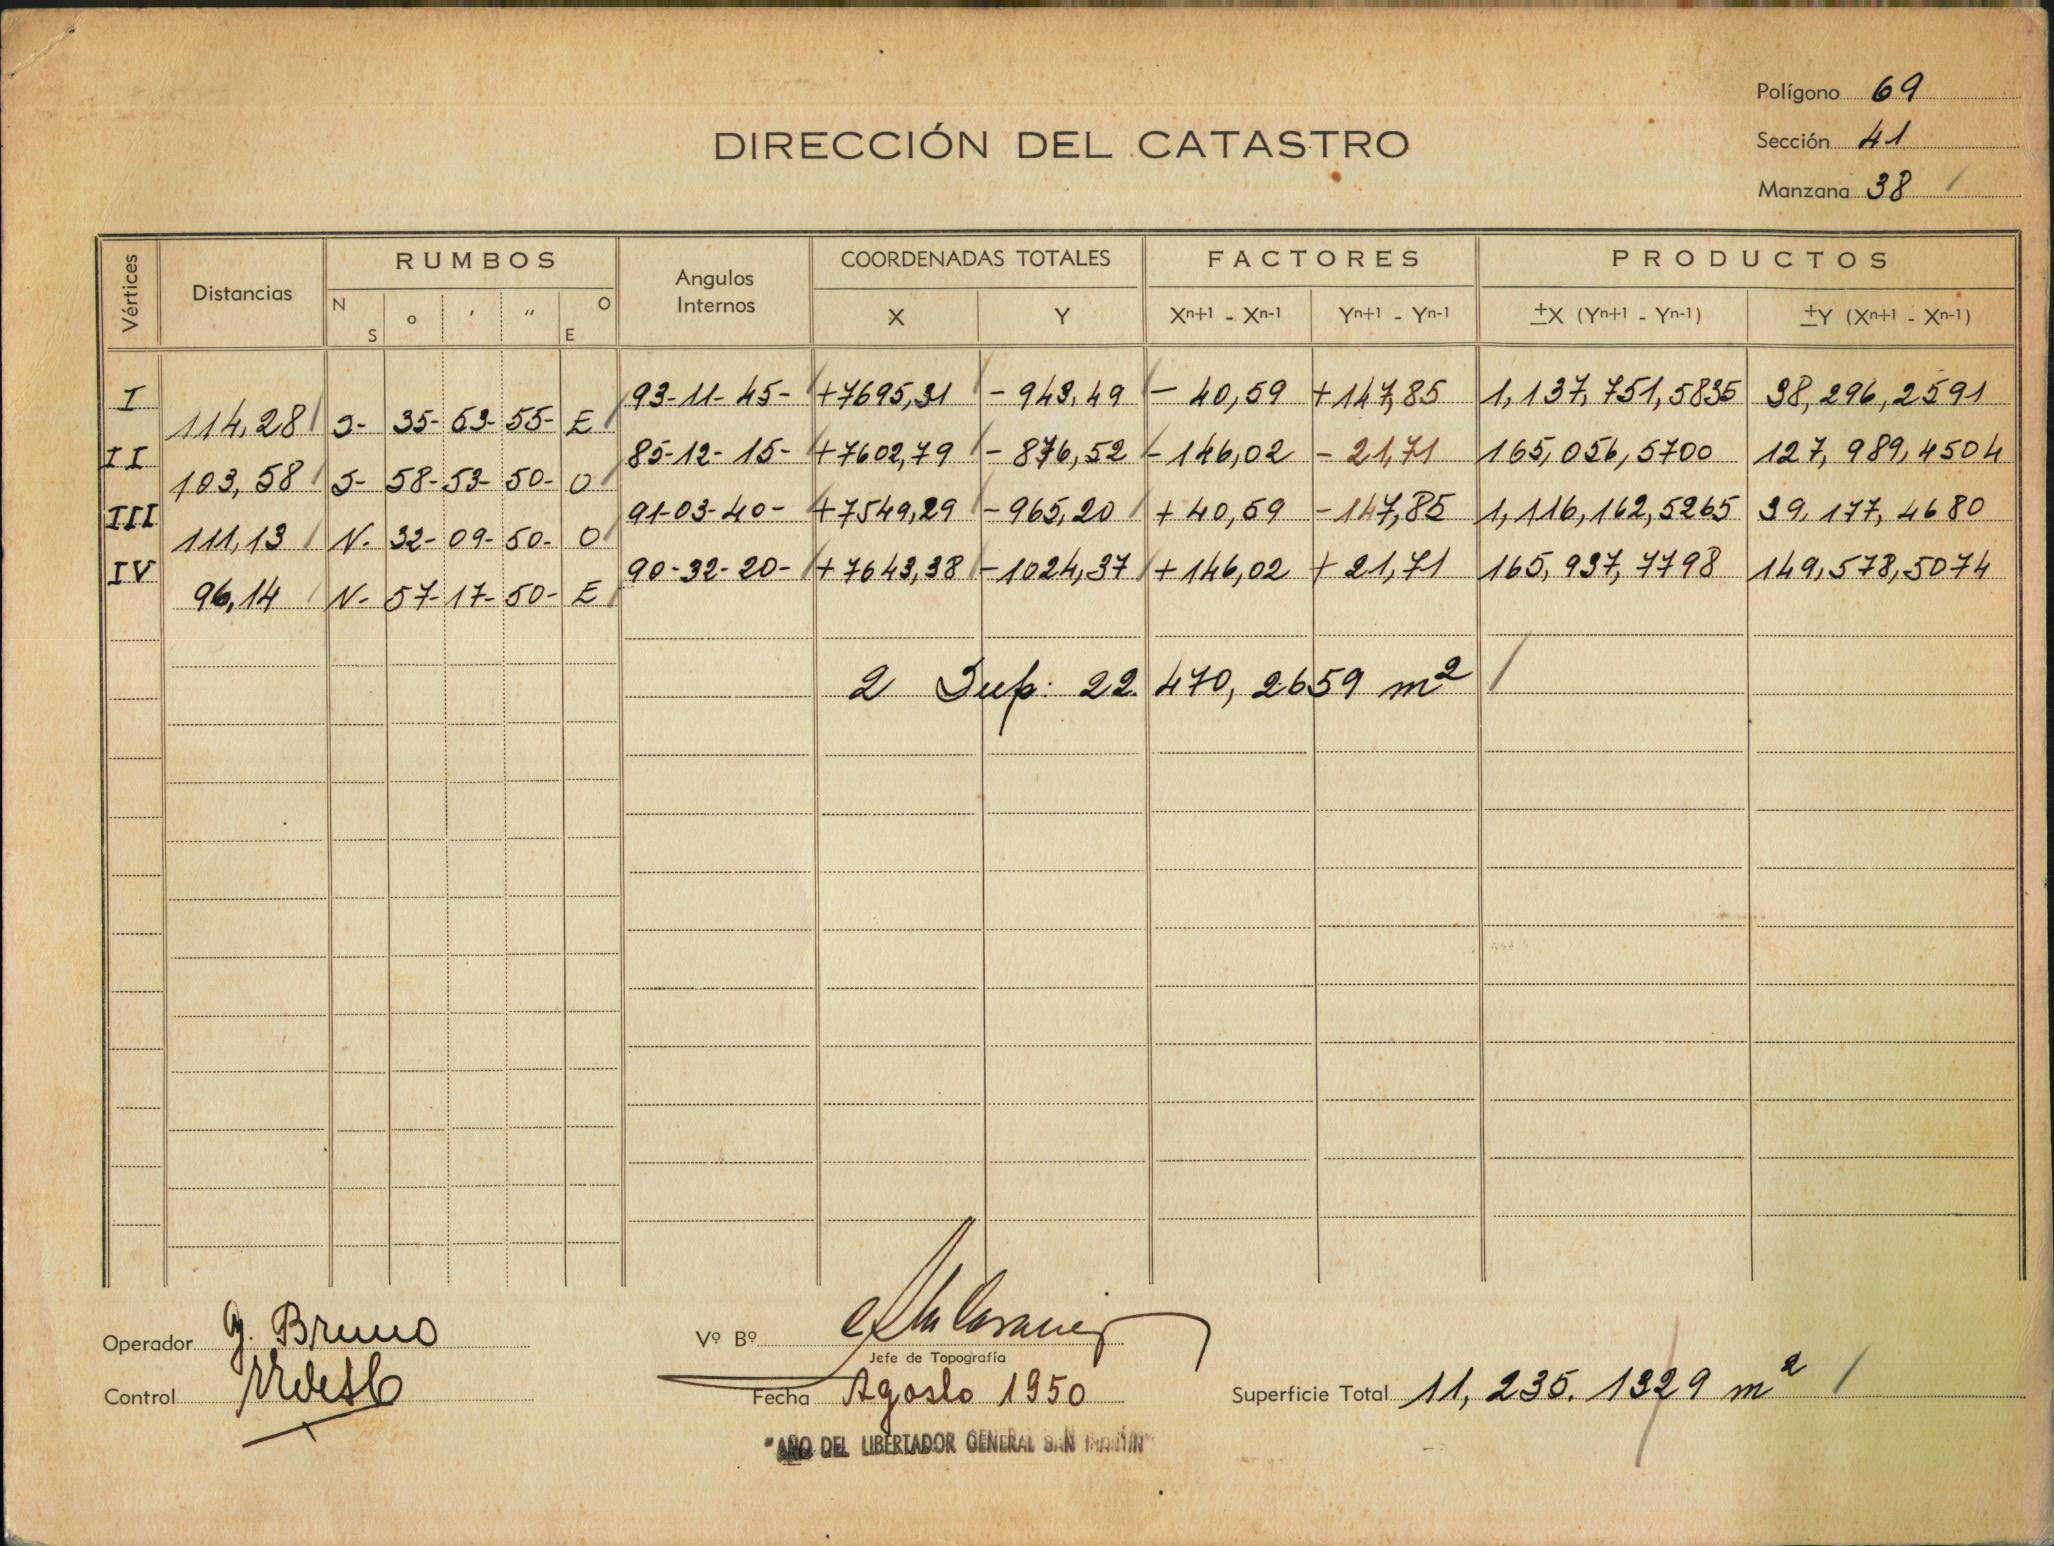 Polígono 69
DIRECCIÓN DEL CATASTRO
Sección 41
Manzana 38
Vértices Distancias RUMBOS Angulos Internos COORDENADAS TOTALES FACTORES PRODUCTOS
N S o ' " O E X Y Xn+1 - Xn-1 Yn+1 - Yn-1 ±X (Yn+1 - Yn-1) ±Y (Xn+1 - Xn-1)
I 93-11-45- +7695,31 -943,49 -40,59 +147,85 1,137,751,5835 38,296,2591
114,28 S- 35-53-55- E
II 85-12-15- +7602,79 -876,52 -146,02 -21,71 165,056,5700 127,989,4504
103,58 S- 58-53-50- O
III 91-03-40- +7549,29 -965,20 +40,59 -147,85 1,116,162,5265 39,177,4680
111,13 N- 32-09-50- O
IV 90-32-20- +7643,38 -1024,37 +146,02 +21,71 165,937,7798 149,578,5074
96,14 N- 57-17-50- E
2 Sup: 22.470,2659 m2
Operador G. Bruno
Vº Bº
Jefe de Topografía
Control
Fecha Agosto 1950
Superficie Total 11,235.1329 m2
"AÑO DEL LIBERTADOR GENERAL SAN MARTIN"